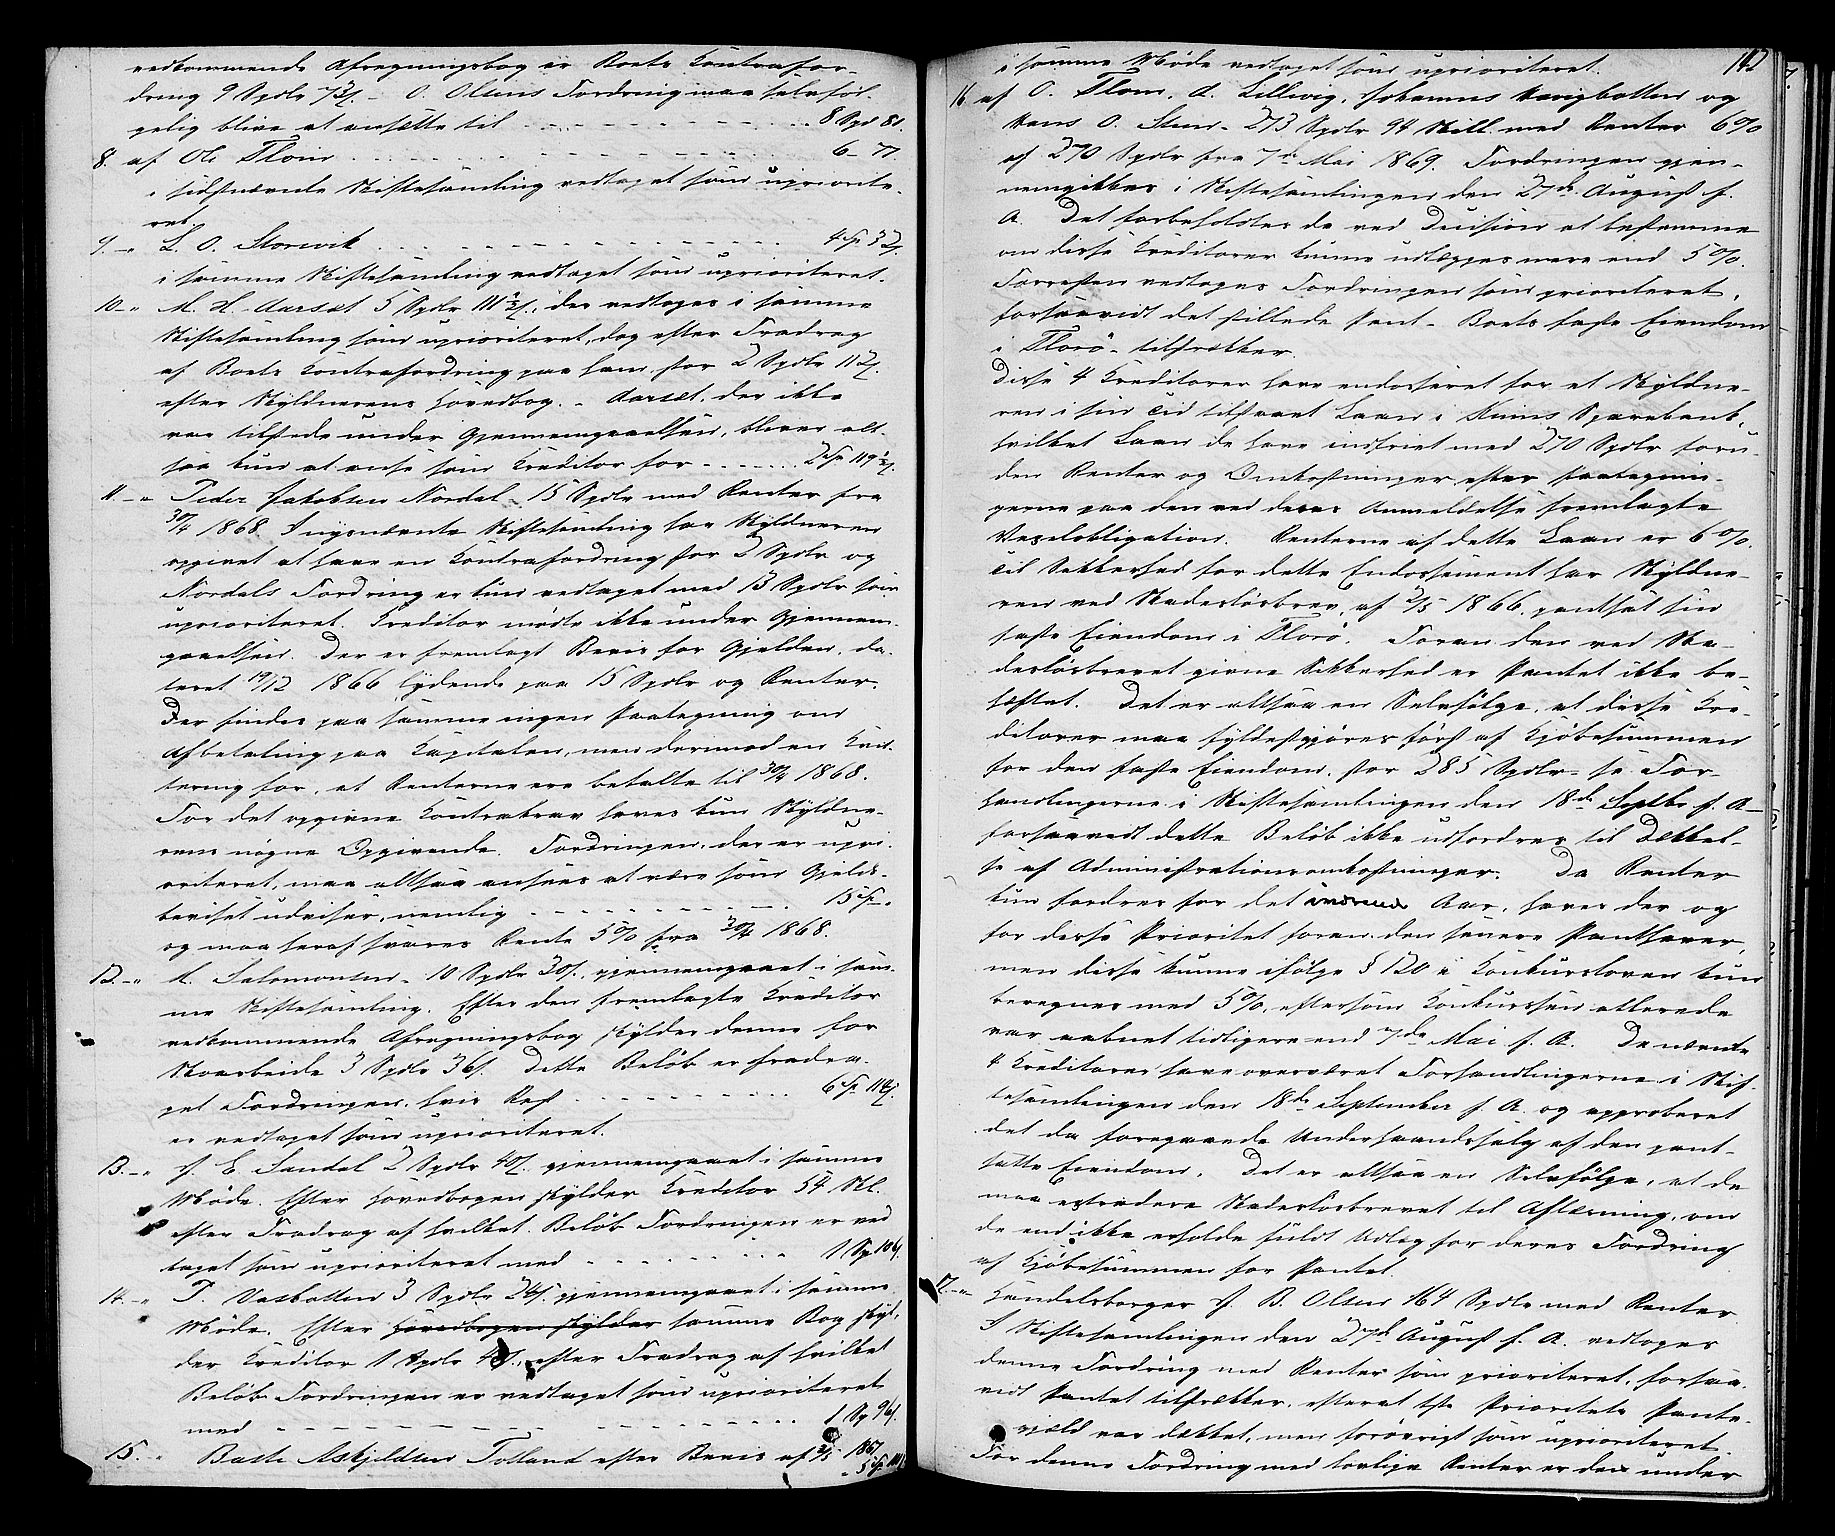 vedkommende Afregningsbog er Boets Contrafor-
dring 9 Spdlr 73 s. – O. Olsens Fordring maa selvføl-
gelig blive at ansætte til 8 Spd 81.
8. af Ole Flom 6 – 77.
i sidstnævnte Skiftesamling vedtaget som upriorite-
ret.
9. –" L. O. Storevik 4 Sp 32 s.
i samme Skiftesamling vedtaget som uprioriteret.
10 –" M. H. Aarset 5 Spdlr 111 ½ s., der vedtoges i samme
Skiftesamling som uprioriteret, dog efter Fradrag
af Boets Contrafordring paa ham stor 2 Spdlr 112 s.
efter Skyldnerens Hovedbog. – Aarset, der ikke
var tilstede under Gjennemgaaelsen, bliver alt-
saa kun at anse som Creditor for 2 Sp 119 ½ s.
11 –" Peder Jakobsen Nordal – 15 Spdlr med Renter fra
30/4 1868. I nysnævnte Skiftesamling har Skyldneren
opgivet at have en Contrafordring stor 2 Spdlr og
Nordals Fordring er kun vedtaget med 13 Spdlr som
uprioriteret. Creditor mødte ikke under Gjennem-
gaaelsen. Der er fremlagt Bevis for Gjelden, da-
teret 19/12 1866 lydende paa 15 Spdlr og Renter.
Der findes paa samme ingen Paategning om
Afbetaling paa Capitalen, men derimod en Kvit-
tering for, at Renterne ere betalte til 30/4 1868.
For det opgivne Contrakrav haves kun Skyldne-
rens nøgne Opgivende. Fordringen, der er upri-
oriteret, maa altsaa ansees at være som Gjelds-
beviset udviser, nemlig 15 Sp –"
og maa heraf svares Rente 5 % fra 30/4 1868.
12. –" K. Salomonsen – 10 Spdlr 30 s., gjennemgaaet i sam-
me Skiftesamling. Efter den fremlagte Kreditor
vedkommende Afregningsbog skylder denne for
Skoarbeide 3 Spdlr 36 s. Dette Beløb er fradra-
get Fordringen, hvis Rest 6 Sp 114 s.
er vedtaget som uprioriteret.
13. –" J. E. Sandal 2 Spdlr 40 s. gjennemgaaet i samme
Møde. Efter Hovedbogen skylder Kreditor 54 Sk.
efter Fradrag af hvilket Beløb Fordringen er ved
taget som uprioriteret med 1 Sp 106 s.
14. –" P. Vasbotten 3 Spdlr 24 s. gjennemgaaet i samme
Møde. Efter Hovedbogen skylder samme Bog skyl-
der Kreditor 1 Spdlr 48 s., efter Fradrag af hvilket
Beløb Fordringen er vedtaget som uprioriteret
med 1 Sp 96 s.
15. " Askjeldsen Folland efter Bevis af 1867
142
i samme Møde vedtaget som uprioriteret.
16 af O. Flom, A. Lillevig, Johannes Havigbotten og
Hans O. Steen – 273 Spdlr 94 Skill. med Renter 6 %
af 270 Spdlr fra 7de Mai 1869. Fordringen gjen-
nemgikkes i Skiftesamlingen den 27de August f.
A. Det forbeholdtes da ved Decision at bestemme
om disse Creditorer kunne udlægges mere end 5 %.
Forresten vedtoges Fordringen som prioriteret,
forsaavidt det stillede Pant – Boets faste Eiendom
i Florø – tilstrækker.
Disse 4 Creditorer have endosseret for et Skyldne-
ren i sin Tid tilstaaet Laan i Kinns Sparebank,
hvilket Laan de have indfriet med 270 Spdlr foru-
den Renter og Omkostninger efter Paategnin-
gerne paa den ved deres Anmeldelse fremlagte
Vexelobligation. Renterne af dette Laan er 6 %.
Til Sikkerhed for dette Endossement har Skyldne-
ren ved Skadesløsbrev af 2/5 1866 pantsat sin
faste Eiendom i Florø. Foran den ved Ska-
desløsbrevet givne Sikkerhed er Pantet ikke be-
hæftet. Det er altsaa en Selvfølge, at disse Kre-
ditorer maa fyldestgjøres først af Kjøbesummen
for den faste Eiendom, stor 285 Spdlr – se For-
handlingerne i Skiftesamlingen den 18de Septbr f. A –
forsaavidt dette Beløb ikke udfordres til Dækkel-
se af Administrationsomkostninger. Da Renter
kun fordres for det inderna Aar, haves der og
for disse Prioritet foran den senere Panthaver,
men disse kunne ifølge § 120 i Konkursloven kun
beregnes med 5 %, eftersom Konkurssen allerede
var aabnet tidligere end 7de Mai f. A. De nævnte
4 Kreditorer have overværet Forhandlingerne i Skif-
tesamlingen den 18de September f. A. og approberet
det da foregaaede Underhaandssalg af den pant-
satte Eiendom. Det er altsaa en Selvfølge, at de
maa extradere Skadesløsbrevet til Aflæsning, om
de end ikke erholde fuldt Udlæg for deres Fordring
af Kjøbesummen for Pantet.
17. –" Handelsborger J. B. Olsen 164 Spdlr med Renter
I Skiftesamlingen den 27de August f. A. vedtoges
denne Fordring med Renter som prioriteret, forsaa-
vidt Pantet tilstrækker, efterat 1ste Prioritets Pante-
gjæld var dækket, men forøvrigt som uprioriteret.
For denne Fordring med lovlige Renter er der under